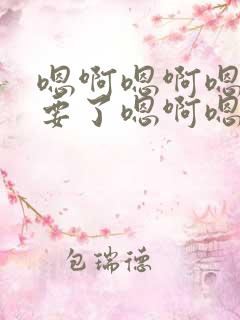 嗯啊嗯啊嗯
要了嗯啊嗯
包瑞德